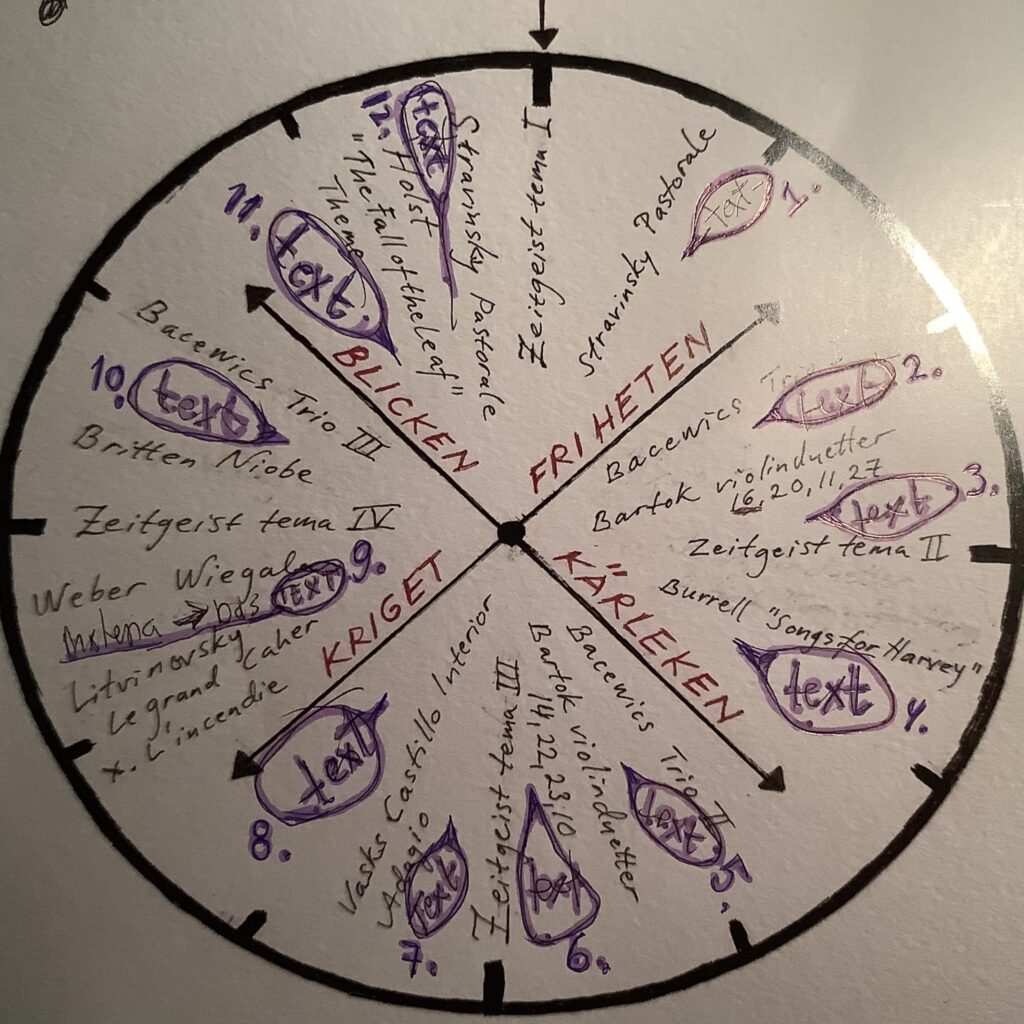 Zeitgeist tema I
Stravinsky Pastorale
text
1.
FRIHETEN
Bacewics Trio
text
2.
Bartok violinduetter
16, 20, 11, 27
text
3.
Zeitgeist tema II
Burrell "Songs for Harvey"
text
4.
KÄRLEKEN
Bacewics Trio II
text
5.
Bartok violinduetter
14, 22, 23, 10
text
6.
Zeitgeist tema III
Vasks Castillo Interior
Adagio
text
7.
text
8.
KRIGET
Weber Wiegala
text
9.
Litvinovsky
Le grand Caher
x. L'incendie
Zeitgeist tema IV
Britten Niobe
text
10.
Bacewics Trio III
BLICKEN
text
11.
12. Holst
"The Fall of the Leaf"
Theme
text
Stravinsky Pastorale